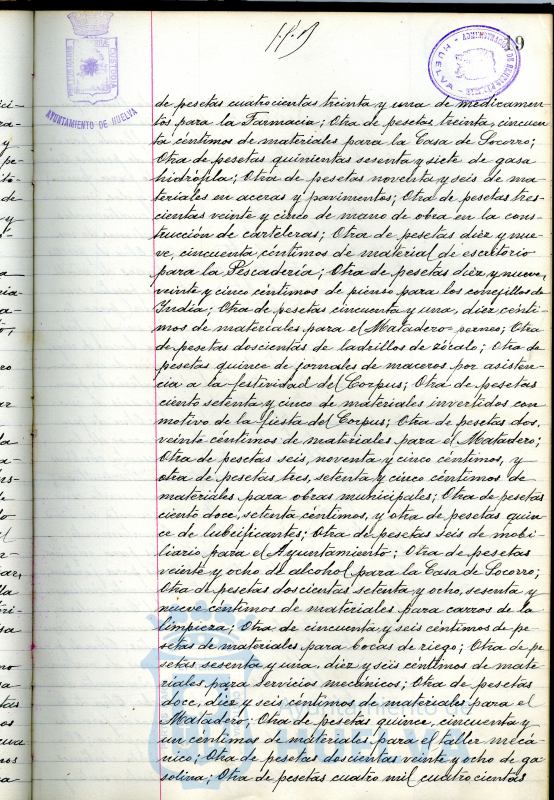 19
AYUNTAMIENTO DE HUELVA
HUELVA
de pesetas cuatrocientas treinta y una de medicamen-
tos para la Farmacia; Otra de pesetas treinta, cincuen
ta céntimos de materiales para la Casa de Socorro;
Otra de pesetas quinientas sesenta y siete de gasa
hidrófila; Otra de pesetas noventa y seis de ma
teriales en aceras y pavimentos; Otra de pesetas tres-
cientas veinte y cinco de mano de obra en la cons-
trucción de carteleras; Otra de pesetas diez y nue-
ve, cincuenta céntimos de material de escritorio
para la Pescadería; Otra de pesetas diez y nueve,
veinte y cinco céntimos de pienso para los conejillos de
India; Otra de pesetas cincuenta y una, diez cénti-
mos de materiales para el Matadero porcno; Otra
de pesetas doscientas de ladrillos de zócalo; Otra de
pesetas quince de jornales de maceros por asisten-
cia a la festividad del Corpus; Otra de pesetas
ciento setenta y cinco de materiales invertidos con
motivo de la fiesta del Corpus; Otra de pesetas dos,
veinte céntimos de materiales para el Matadero;
Otra de pesetas seis, noventa y cinco céntimos, y
otra de pesetas tres, setenta y cinco céntimos de
materiales para obras municipales; Otra de pesetas
ciento doce, setenta céntimos, y otra de pesetas quin
ce de lubrificantes; Otra de pesetas seis de mobi-
liario para el Ayuntamiento; Otra de pesetas
veinte y ocho de alcohol para la Casa de Socorro;
Otra de pesetas doscientas setenta y ocho, sesenta y
nueve céntimos de materiales para carros de la
limpieza; Otra de cincuenta y seis céntimos de pe-
setas de materiales para bocas de riego; Otra de pe-
setas sesenta y una, diez y seis céntimos de mate-
riales para servicios mecánicos; Otra de pesetas
doce, diez y seis céntimos de materiales para el
Matadero; Otra de pesetas quince, cincuenta y
un céntimos de materiales para el taller mecá-
nico; Otra de pesetas doscientas veinte y ocho de ga
solina; Otra de pesetas cuatro mil cuatrocientas